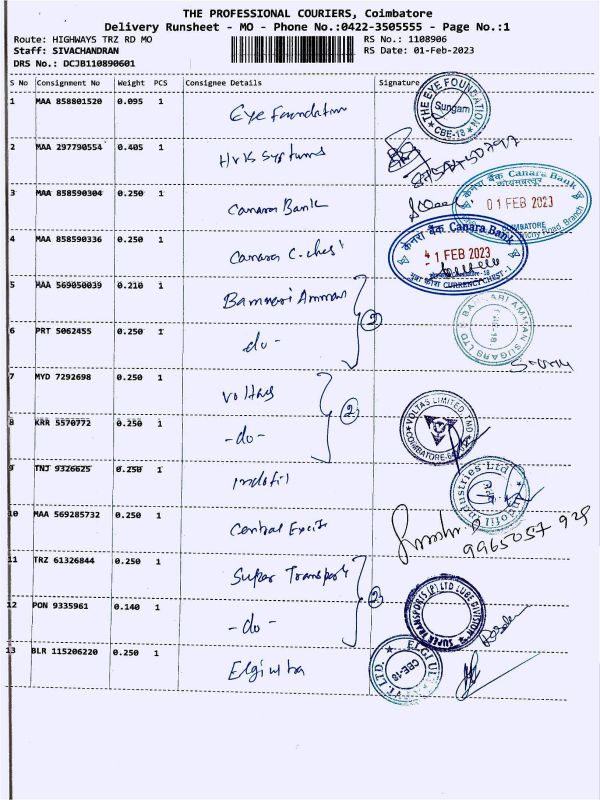 THE PROFESSIONAL COURIERS, Coimbatore
Delivery Runsheet - MO - Phone No.:0422-3505555 - Page No.:1
Route: HIGHWAYS TRZ RD MO RS No.: 1108906
Staff: SIVACHANDRAN RS Date: 01-Feb-2023
DRS No.: DCJB110890601
S No Consignment No Weight PCS Consignee Details Signature
1 MAA 858801520 0.095 1 Eye Foundation
THE EYE FOUNDATION Sungam CBE-18
2 MAA 297790554 0.405 1 HvK Systems
3 MAA 858590304 0.250 1 Canara Bank
केनरा बैंक Canara Bank
कोयम्बत्तूर
01 FEB 2023
COIMBATORE
Branch
4 MAA 858590336 0.250 1 Canara C. chest
केनरा बैंक Canara Bank
1 FEB 2023
CURRENCY CHEST - 1
5 MAA 569050039 0.210 1 Bannari Amman
BANNARI AMMAN SUGARS LTD
2
6 PRT 5062455 0.250 1 - do -
7 MYD 7292698 0.250 1 Voltas
2
VOLTAS LIMITED
COIMBATORE
8 KRR 5570772 0.250 1 - do -
9 TNJ 9326625 0.250 1 Indofil
Indofil Industries Ltd
10 MAA 569285732 0.250 1 Central Excise
9965057 928
11 TRZ 61326844 0.250 1 Super Transports
2
SUPER TRANSPORTS (P) LTD LUBE DIVISION
12 PON 9335961 0.140 1 - do -
13 BLR 115206220 0.250 1 Elgi ultra
ELGI ULTRA
CBE-18
PVT. LTD.